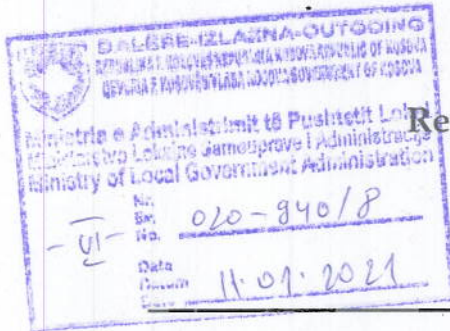 DALËSE-IZLAZNA-OUTGOING
REPUBLIKA E KOSOVËS/REPUBLIKA KOSOVA/REPUBLIC OF KOSOVA
QEVERIA E KOSOVËS/VLADA KOSOVA/GOVERNMENT OF KOSOVA
Ministria e Administrimit të Pushtetit Lokal
Ministarstvo Lokalne Samouprave i Administracije
Ministry of Local Government Administration
Re
Nr.
Br.
No.
020-940/8
- VI -
Data
Datum
Date
11.01.2021